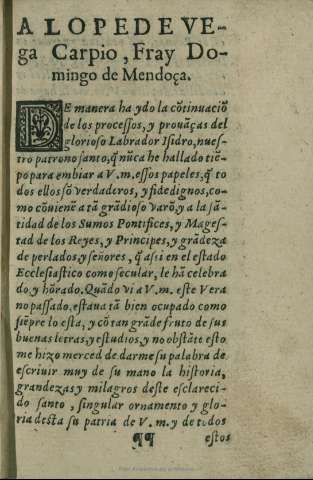 A LOPE DE VE-
ga Carpio, Fray Do-
mingo de Mendoça.
DE manera ha ydo la cõtinuaciõ
de los processos, y prouãças del
glorioso Labrador Isidro, nues-
tro patrono santo, q̃ nũca he hallado tiẽ-
po para embiar a V.m. essos papeles, q̃ to
dos ellos sõ verdaderos, y fidedignos, co-
mo cõuiene a tã grãdioso varõ, y a la sã-
tidad de los Sumos Pontifices, y Mages-
tad de los Reyes, y Principes, y grãdeza
de perlados, y señores, q̃ assi en el estado
Ecclesiastico como secular, le hã celebra
do y hõrado. Quãdo vi a V.m. este Vera
no passado, estaua tã bien ocupado como
siẽpre lo esta, y cõ tan grãde fruto de sus
buenas letras, y estudios, y no obstãte esto
me hizo merced de darme su palabra de
escriuir muy de su mano la historia,
grandezas y milagros deste esclareci-
do santo, singular ornamento y glo-
ria desta su patria de V.m. y de todos
¶¶ estos